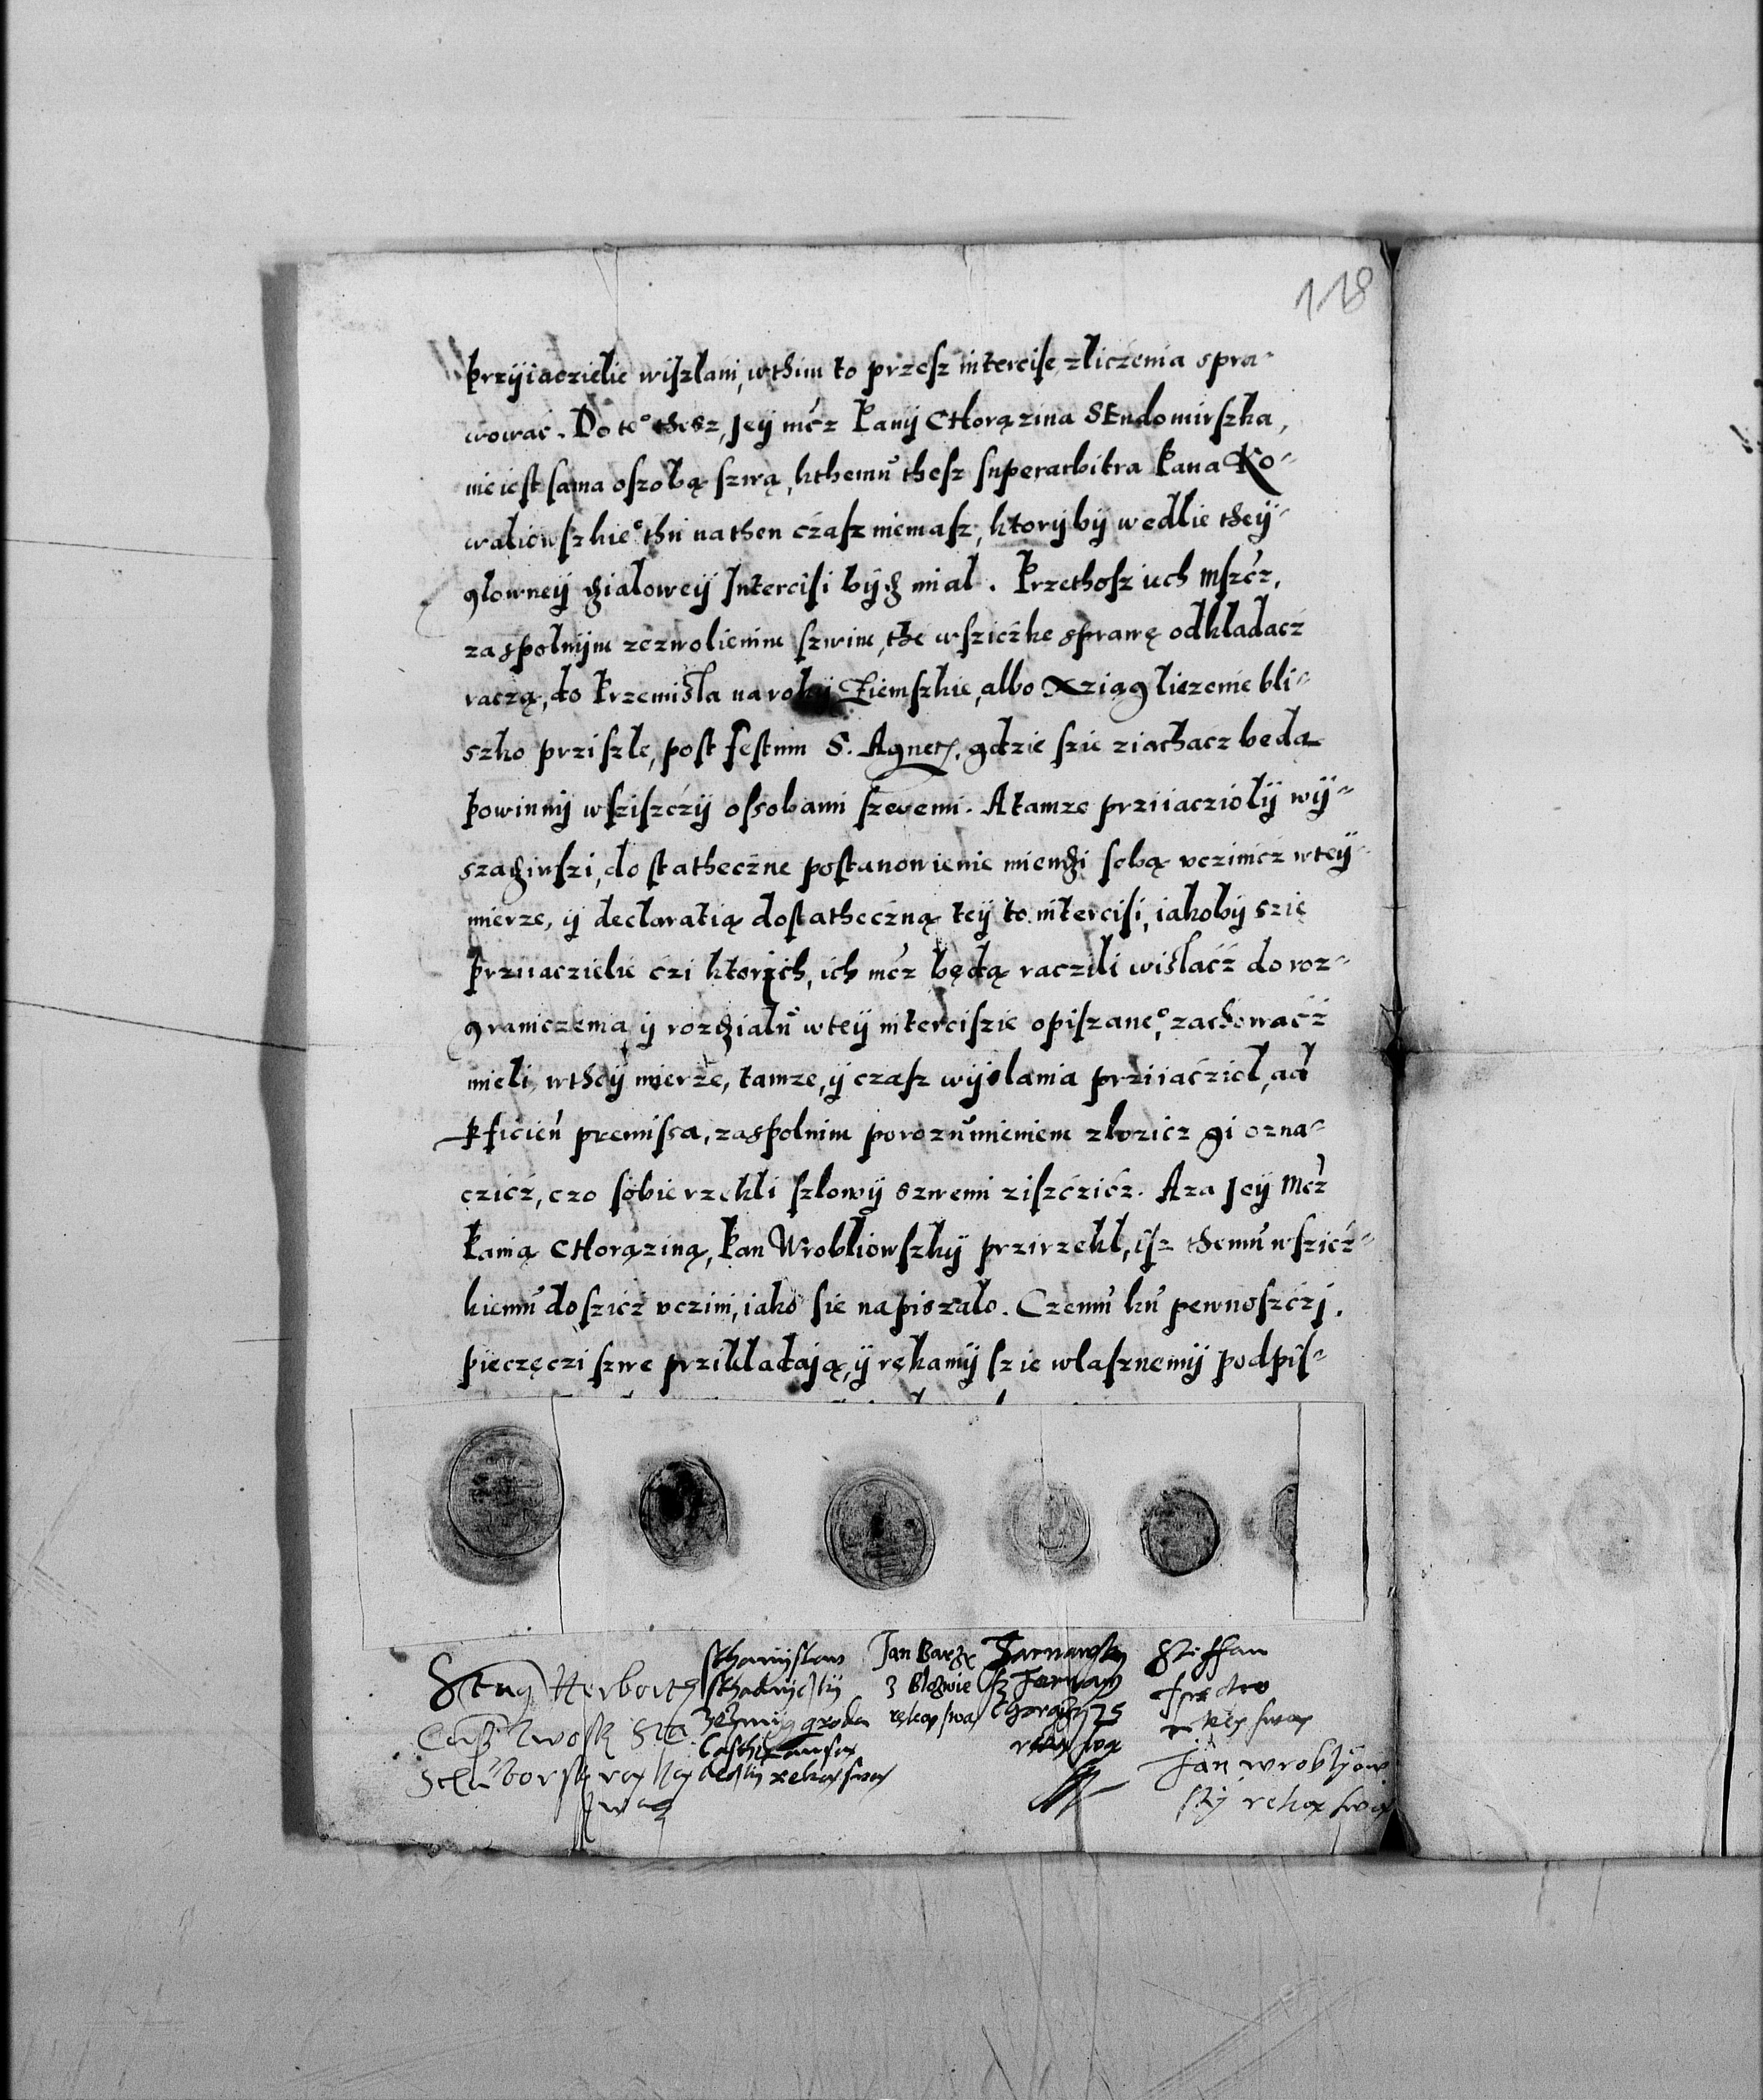 118
Przyiaczielie wiszlani, wthim to przesz intercise, zliczenia spra-
wowac. Do te° thesz, Jey mcz Pany CHorązina SEndomirszka,
nie iest sama oszobą szwą, kthemu thesz superarbitra Pana Ko-
waliowszkie° thu na then czasz niemasz, ktoryby wedlie they
glowney działowey Intercisi bydz mial. Przethosz ich Mszcz,
za spolnym zezwolienim szwim, the wsziczke sprawę odkladacz
raczą, do Przemisla na roky Ziemszkie, albo Xziąg liczenie bli-
szko przisle, post festum S. Agnetis, gdzie szie ziachacz beda
powinny wsziszczy ossobami szwemi. A tamze prziiaczioly wy-
szadziwszi, do statheczne postanowienie miendzi sobą vczinicz wtey
mierze, y declaratią dostatheczną tey to intercisi, iakoby szię
Prziiaczielie czi ktorich, ich mcz będą raczili wislacz do roz-
graniczenia y rozdzialu wtey interciszie opiszane°, zachowacz
mieli, wthey mierze, tamze, y czasz wyslania prziiacziol, ad
pficien premissa, zaspolnim porozumieniem zlozicz gi ozna-
czicz, czo sobie rzekli szlowy szwemi ziszczicz. A za Jey Mcz
Panią CHorąziną, Pan Wrobliowszky przirzekl, isz themu wszicz-
kiemu doszicz vczini, iako sie napiszalo. Czemu ku pewnoszczj.
pieczęczi szwe przikladają, y rękamy szie wlasznemy podpis-
Herborth
Jan
z Blozwie
rękąx swą
Tarnawsky
ręką swą
Jan wroblyow
sky reka swa